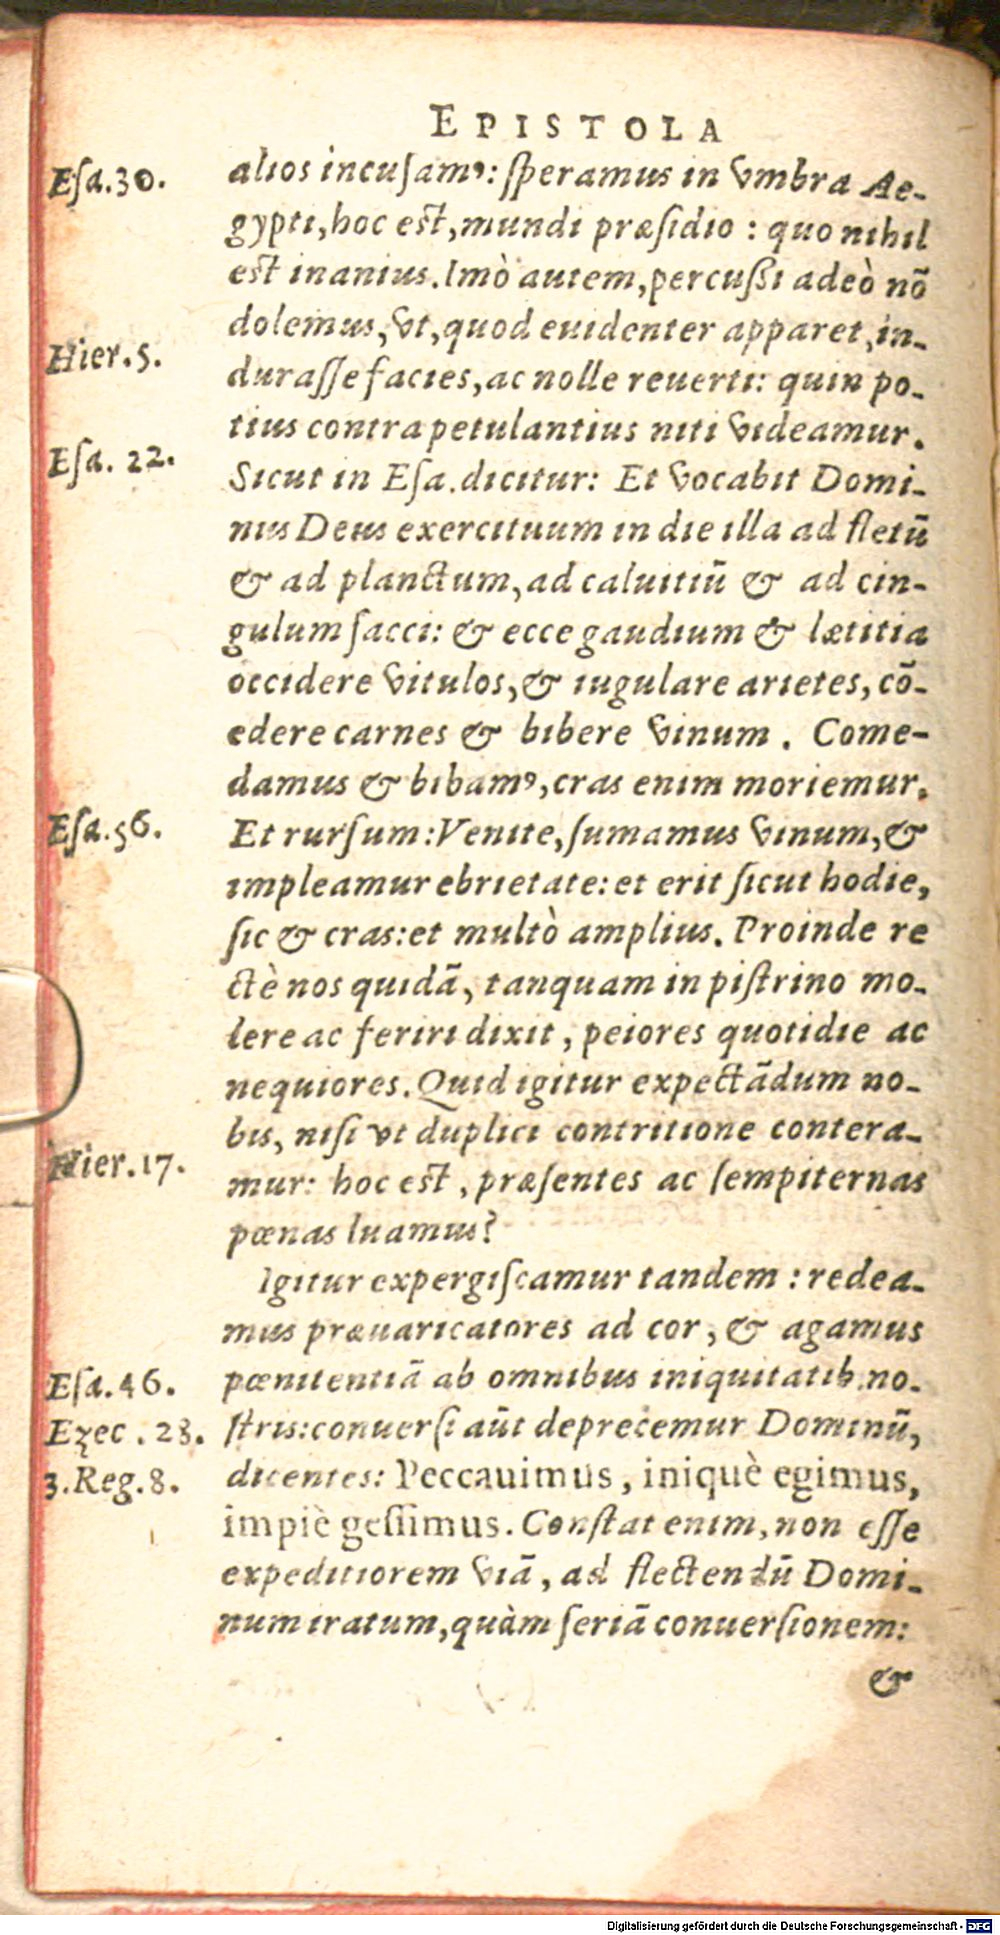 EPISTOLA
Esa.30.
alios incusamꝰ: speramus in vmbra Ae-
gypti, hoc est, mundi præsidio: quo nihil
est inanius. Imò autem, percussi adeò nõ
dolemus, vt, quod euidenter apparet, in-
Hier.5.
durasse facies, ac nolle reuerti: quin po-
tius contra petulantius niti videamur.
Esa. 22.
Sicut in Esa. dicitur: Et vocabit Domi-
nus Deus exercituum in die illa ad fletũ
& ad planctum, ad caluitiũ & ad cin-
gulum sacci: & ecce gaudium & lætitia
occidere vitulos, & iugulare arietes, cõ-
edere carnes & bibere vinum. Come-
damus & bibamꝰ, cras enim moriemur.
Esa.56.
Et rursum: Venite, sumamus vinum, &
impleamur ebrietate: et erit sicut hodie,
sic & cras: et multò amplius. Proinde re
ctè nos quidã, tanquam in pistrino mo-
lere ac feriri dixit, peiores quotidie ac
nequiores. Quid igitur expectãdum no-
bis, nisi vt duplici contritione contera-
Hier.17.
mur: hoc est, præsentes ac sempiternas
pœnas luamus?
Igitur expergiscamur tandem: redea-
mus præuaricatores ad cor, & agamus
Esa.46.
pœnitentiã ab omnibus iniquitatib. no-
Ezec. 28.
stris: conuersi aũt deprecemur Dominũ,
3.Reg.8.
dicentes: Peccauimus, iniquè egimus,
impiè gessimus. Constat enim, non esse
expeditiorem viã, ad flectendũ Domi-
num iratum, quàm seriã conuersionem:
&
Digitalisierung gefördert durch die Deutsche Forschungsgemeinschaft - DFG